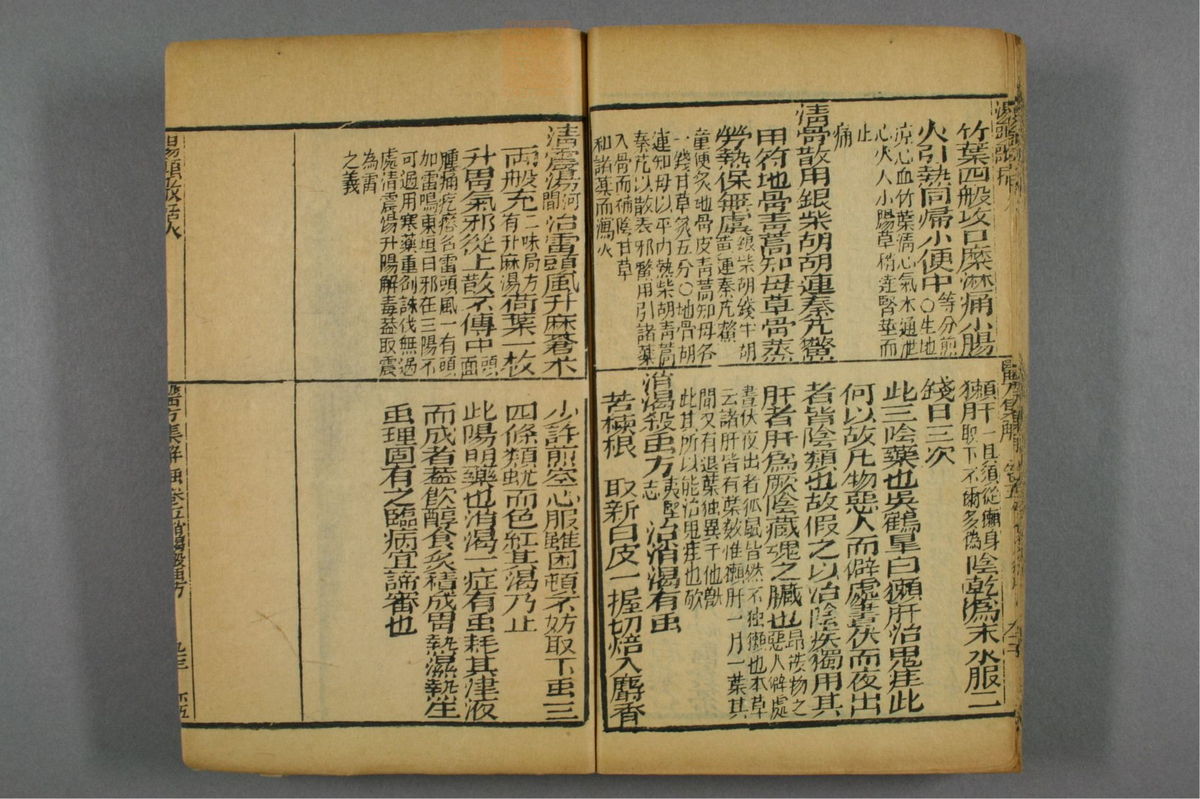 竹葉四般攻口糜淋痛小腸
火引熱同歸小便中等分煎○生地
涼心血竹葉清心氣木通泄
心火入小腸草梢達腎莖而
止
痛
清骨散用銀柴胡胡連秦艽鱉
甲符地骨青蒿知母草骨蒸
勞熱保無虞銀柴胡錢半胡黃連秦艽鱉
童便炙地骨皮青蒿知母各
一錢甘草炙五分○地骨胡
連知母以平內熱柴胡青蒿
秦艽以散表邪鱉用引諸藥
入骨而補陰甘草
和諸藥而瀉火
獺肝一具須從獺身取下不爾多偽陰乾爲末水服二
錢日三次
此三陰藥也吳鶴皐曰獺肝治鬼疰此
何以故凡物惡人而僻處晝伏而夜出
者皆陰類也故假之以治陰疾獨用其
肝者肝爲厥陰藏魂之臟也昂按物之惡人僻處
晝伏夜出者狐鼠皆然不独獺也本草
云諸肝皆有葉数惟獺肝一月一葉其
間又有退葉独異于他獸
此其所以能治鬼疰也欤
消渴殺虫方夷堅志治消渴有虫
苦楝根 取新白皮一握切焙入麝香
清震湯河間治雷頭風升麻蒼朮
兩般充二味局方有升麻湯荷葉一枚
升胃氣邪從上散不傳中頭面
腫痛疙瘩名雷頭風一有頭
如雷鳴東垣曰邪在三陽不
可過用寒藥重剂誅伐無過
處清震湯升陽解毒葢取震
為雷
之義
少許煎空心服雖困頓不妨取下虫三
四條類蚘而色紅其渴乃止
此陽明藥也消渴一症有虫耗其津液
而成者葢飲醇食炙積成胃熱濕熱生
虫理固有之臨病宜諦審也
醫方集解 卷五消渴殺虫方 九三